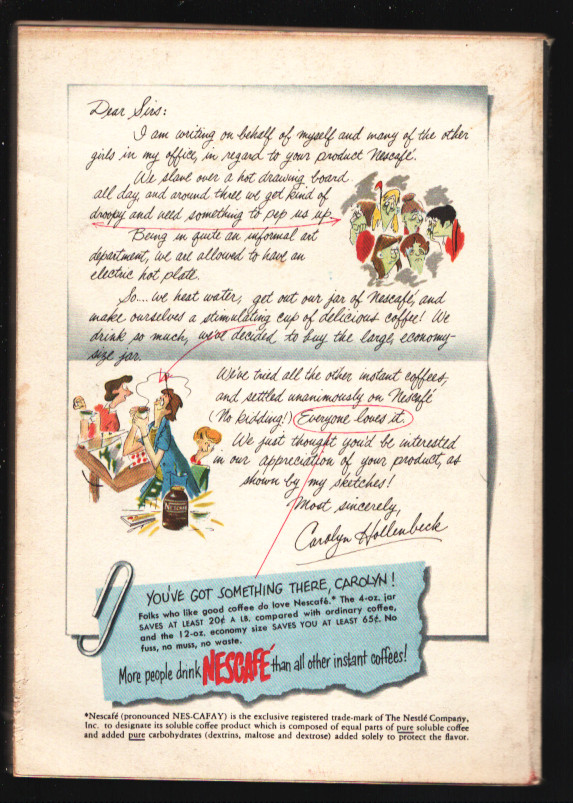 Dear Sirs:
I am writing on behalf of myself and many of the other
girls in my office, in regard to your product Nescafé.
We slave over a hot drawing board
all day, and around three we get kind of
droopy and need something to pep us up.
Being in quite an informal art
department, we are allowed to have an
electric hot plate.
So.... we heat water, get out our jar of Nescafé, and
make ourselves a stimulating cup of delicious coffee! We
drink so much, we've decided to buy the large, economy-
size jar.
We've tried all the other instant coffees,
and settled unanimously on Nescafé
(No kidding!) Everyone loves it.
We just thought you'd be interested
in our appreciation of your product, as
shown by my sketches!
Most sincerely,
Carolyn Hollenbeck
NESCAFÉ
YOU'VE GOT SOMETHING THERE, CAROLYN!
Folks who like good coffee do love Nescafé.* The 4-oz. jar
SAVES AT LEAST 20¢ A LB. compared with ordinary coffee,
and the 12-oz. economy size SAVES YOU AT LEAST 65¢. No
fuss, no muss, no waste.
More people drink NESCAFÉ than all other instant coffees!
*Nescafé (pronounced NES-CAFAY) is the exclusive registered trade-mark of The Nestlé Company,
Inc. to designate its soluble coffee product which is composed of equal parts of pure soluble coffee
and added pure carbohydrates (dextrins, maltose and dextrose) added solely to protect the flavor.